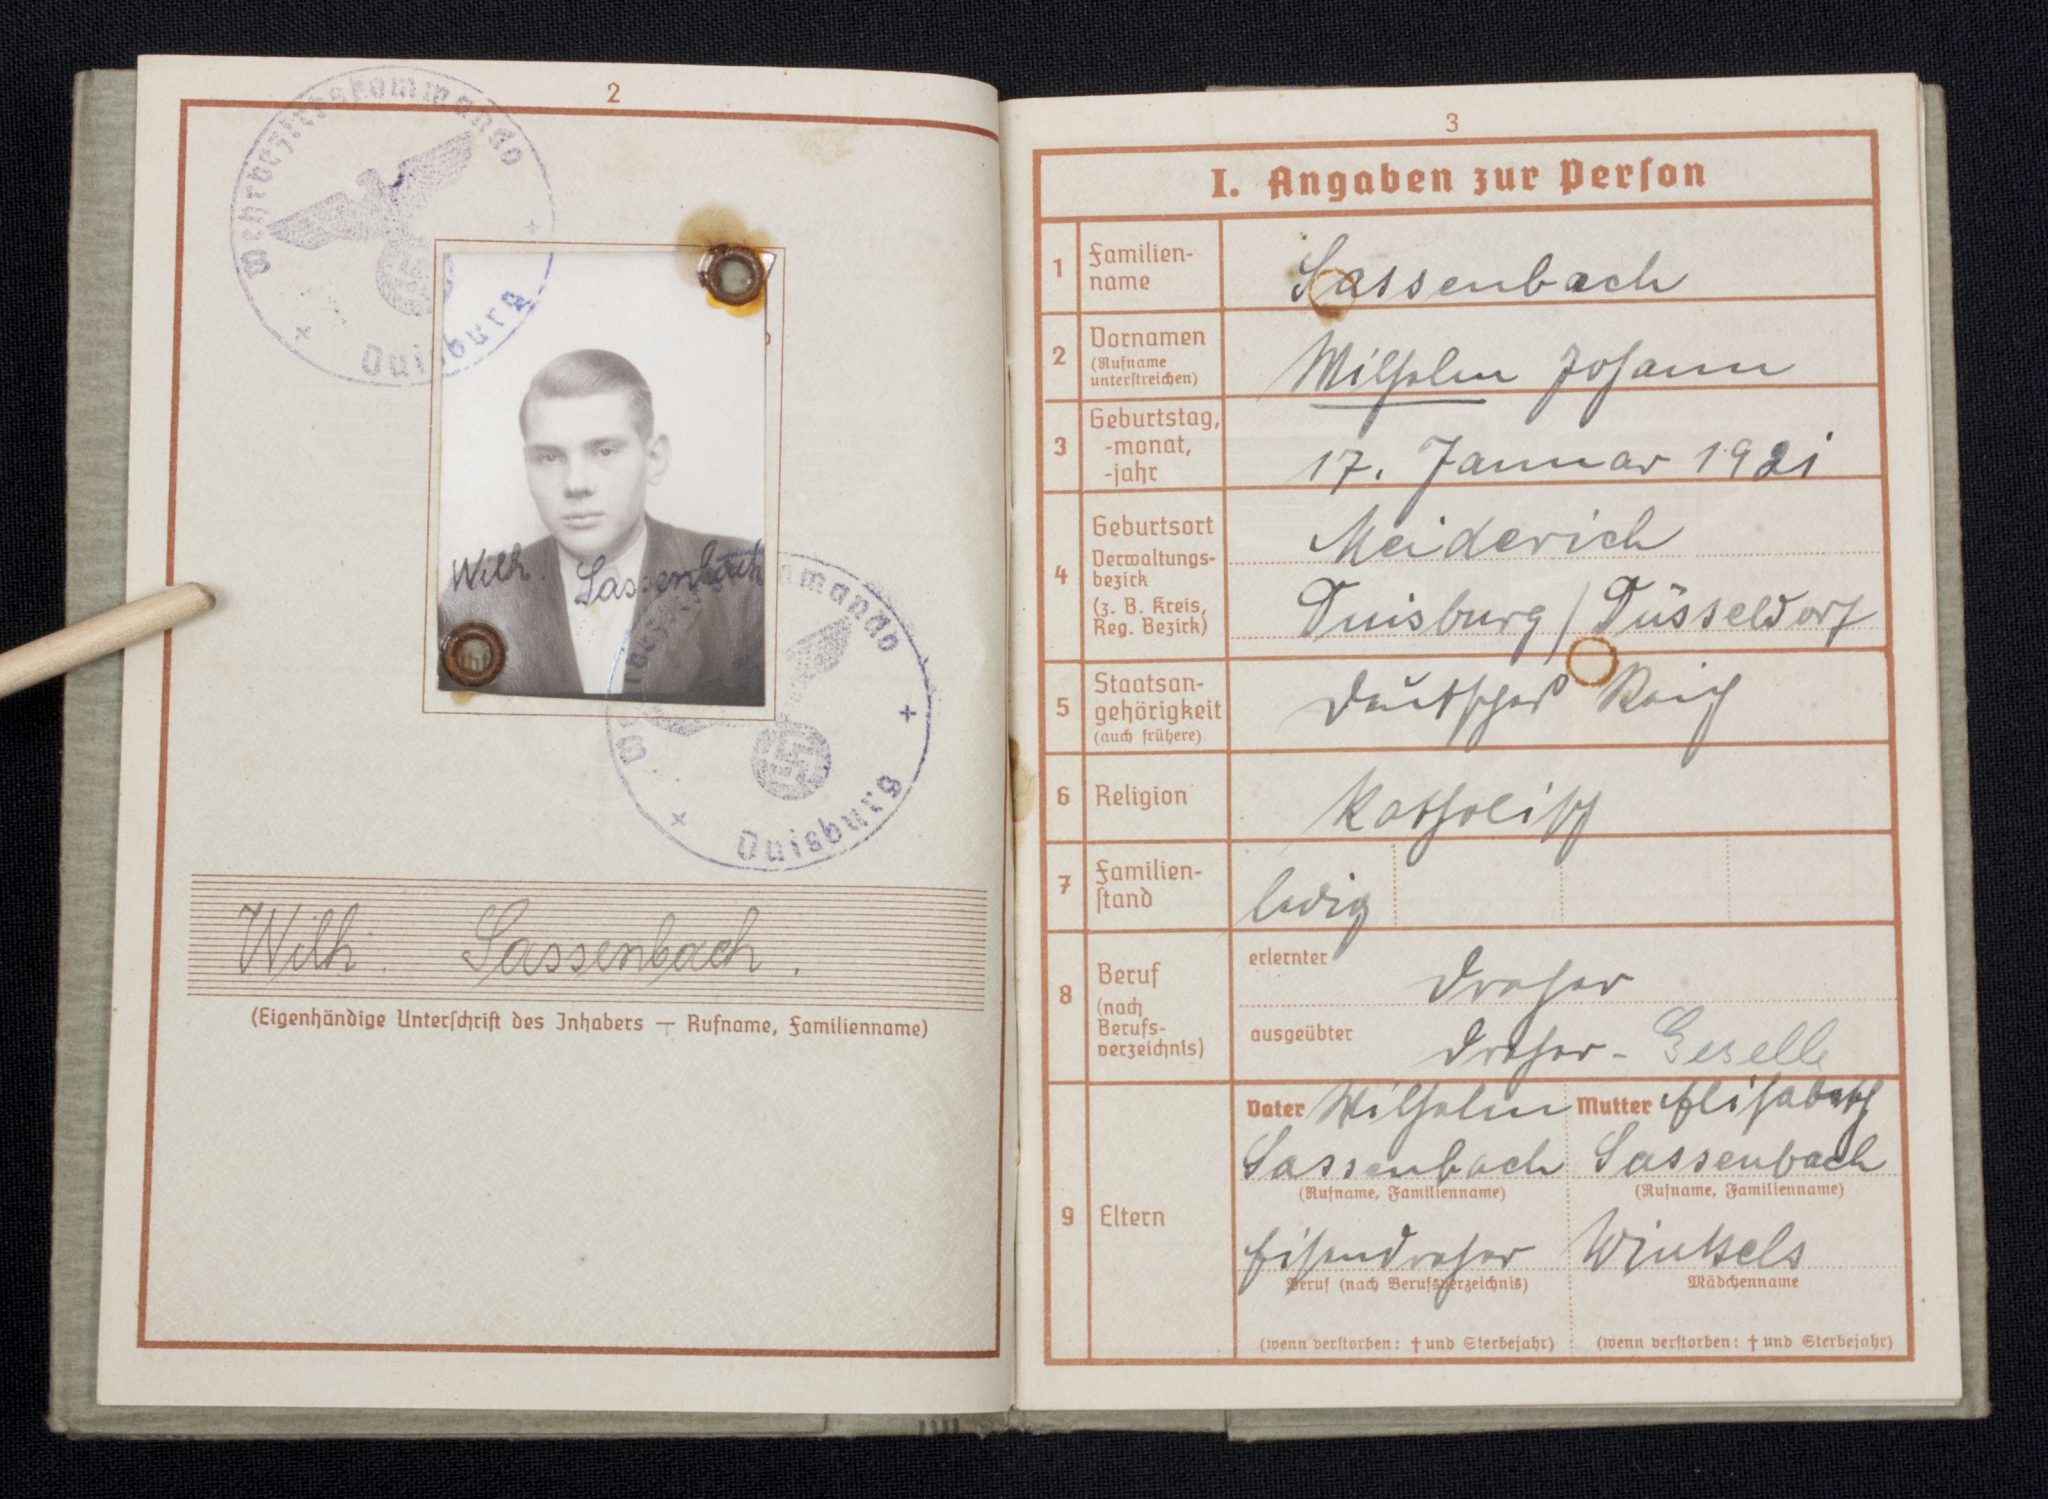 2
Wehrbezirkskommando
Duisburg
Wilh. Sassenbach
Duisburg
Wilh. Sassenbach.
(Eigenhändige Unterſchrift des Inhabers — Rufname, Familienname)
3
I. Angaben zur Perſon
1 Familien-
name
Sassenbach
2 Vornamen
(Rufname
unterſtreichen)
Wilhelm Johann
3 Geburtstag,
-monat,
-jahr
17. Januar 1921
4 Geburtsort
Verwaltungs-
bezirk
(z. B. Kreis,
Reg. Bezirk)
Meiderich
Duisburg / Düsseldorf
5 Staatsan-
gehörigkeit
(auch frühere)
Deutsches Reich
6 Religion
Katholisch
7 Familien-
ſtand
ledig
8 Beruf
(nach
Berufs-
verzeichnis)
erlernter Dreher
ausgeübter Dreher-Geselle
9 Eltern
Vater Wilhelm
Sassenbach
(Rufname, Familienname)
Eisendreher
Beruf (nach Berufsverzeichnis)
(wenn verſtorben: † und Sterbejahr)
Mutter Elisabeth
Sassenbach
(Rufname, Familienname)
Mädchenname
(wenn verſtorben: † und Sterbejahr)